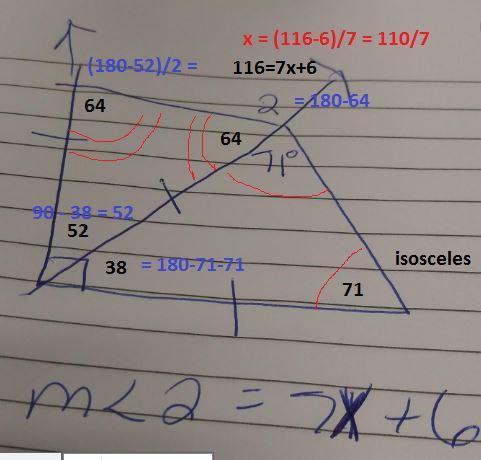 x = (116-6)/7 = 110/7
(180-52)/2 =
116=7x+6
64
2
= 180-64
64
71°
90 - 38 = 52
52
38
= 180-71-71
isosceles
71
m<2 = 7x+6